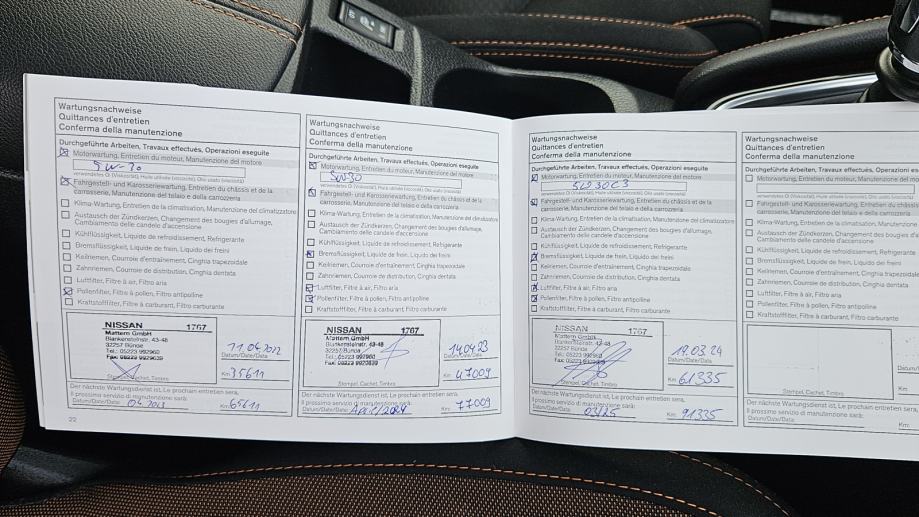 Wartungsnachweise
Quittances d'entretien
Conferma della manutenzione
Durchgeführte Arbeiten, Travaux effectués, Operazioni eseguite
Motorwartung, Entretien du moteur, Manutenzione del motore
5W-30
verwendetes Öl (Viskosität), Huile utilisée (viscosité), Olio usato (viscosità)
Fahrgestell- und Karosseriewartung, Entretien du châssis et de la
carrosserie, Manutenzione del telaio e della carrozzeria
Klima-Wartung, Entretien de la climatisation, Manutenzione del climatizzatore
Austausch der Zündkerzen, Changement des bougies d'allumage,
Cambiamento delle candele d'accensione
Kühlflüssigkeit, Liquide de refroidissement, Refrigerante
Bremsflüssigkeit, Liquide de frein, Liquido dei freini
Keilriemen, Courroie d'entraînement, Cinghia trapezoidale
Zahnriemen, Courroie de distribution, Cinghia dentata
Luftfilter, Filtre à air, Filtro aria
Pollenfilter, Filtre à pollen, Filtro antipolline
Kraftstofffilter, Filtre à carburant, Filtro carburante
NISSAN 1767
Mattern GmbH
Blankensteinstr. 43-48
32257 Bünde
Tel.: 05223 992960
Fax: 05223 9929639
Stempel, Cachet, Timbro
11.04.2022
Datum/Date/Data
Km: 35611
Der nächste Wartungsdienst ist, Le prochain entretien sera,
Il prossimo servizio di manutenzione sarà:
Datum/Date/Data: 04.2023 Km: 65611
22
Wartungsnachweise
Quittances d'entretien
Conferma della manutenzione
Durchgeführte Arbeiten, Travaux effectués, Operazioni eseguite
Motorwartung, Entretien du moteur, Manutenzione del motore
5W30
verwendetes Öl (Viskosität), Huile utilisée (viscosité), Olio usato (viscosità)
Fahrgestell- und Karosseriewartung, Entretien du châssis et de la
carrosserie, Manutenzione del telaio e della carrozzeria
Klima-Wartung, Entretien de la climatisation, Manutenzione del climatizzatore
Austausch der Zündkerzen, Changement des bougies d'allumage,
Cambiamento delle candele d'accensione
Kühlflüssigkeit, Liquide de refroidissement, Refrigerante
Bremsflüssigkeit, Liquide de frein, Liquido dei freini
Keilriemen, Courroie d'entraînement, Cinghia trapezoidale
Zahnriemen, Courroie de distribution, Cinghia dentata
Luftfilter, Filtre à air, Filtro aria
Pollenfilter, Filtre à pollen, Filtro antipolline
Kraftstofffilter, Filtre à carburant, Filtro carburante
NISSAN 1767
Mattern GmbH
Blankensteinstr. 43-48
32257 Bünde
Tel.: 05223 992960
Fax: 05223 9929639
Stempel, Cachet, Timbro
14.04.23
Datum/Date/Data
Km: 47009
Der nächste Wartungsdienst ist, Le prochain entretien sera,
Il prossimo servizio di manutenzione sarà:
Datum/Date/Data: April/2024 Km: 77009
Wartungsnachweise
Quittances d'entretien
Conferma della manutenzione
Durchgeführte Arbeiten, Travaux effectués, Operazioni eseguite
Motorwartung, Entretien du moteur, Manutenzione del motore
5W30C3
verwendetes Öl (Viskosität), Huile utilisée (viscosité), Olio usato (viscosità)
Fahrgestell- und Karosseriewartung, Entretien du châssis et de la
carrosserie, Manutenzione del telaio e della carrozzeria
Klima-Wartung, Entretien de la climatisation, Manutenzione del climatizzatore
Austausch der Zündkerzen, Changement des bougies d'allumage,
Cambiamento delle candele d'accensione
Kühlflüssigkeit, Liquide de refroidissement, Refrigerante
Bremsflüssigkeit, Liquide de frein, Liquido dei freini
Keilriemen, Courroie d'entraînement, Cinghia trapezoidale
Zahnriemen, Courroie de distribution, Cinghia dentata
Luftfilter, Filtre à air, Filtro aria
Pollenfilter, Filtre à pollen, Filtro antipolline
Kraftstofffilter, Filtre à carburant, Filtro carburante
NISSAN 1767
Mattern GmbH
Blankensteinstr. 43-48
32257 Bünde
Tel.: 05223 992960
Fax: 05223 9929639
Stempel, Cachet, Timbro
19.03.24
Datum/Date/Data
Km: 61335
Der nächste Wartungsdienst ist, Le prochain entretien sera,
Il prossimo servizio di manutenzione sarà:
Datum/Date/Data: 03/25 Km: 91335
Wartungsnachweise
Quittances d'entretien
Conferma della manutenzione
Durchgeführte Arbeiten, Travaux effectués, Operazioni
Motorwartung, Entretien du moteur, Manutenzione del
verwendetes Öl (Viskosität), Huile utilisée (viscosité), Olio usato
Fahrgestell- und Karosseriewartung, Entretien du châssis
carrosserie, Manutenzione del telaio e della carrozzeria
Klima-Wartung, Entretien de la climatisation, Manutenzione
Austausch der Zündkerzen, Changement des bougies
Cambiamento delle candele d'accensione
Kühlflüssigkeit, Liquide de refroidissement, Refrigerante
Bremsflüssigkeit, Liquide de frein, Liquido dei freini
Keilriemen, Courroie d'entraînement, Cinghia trapezoidale
Zahnriemen, Courroie de distribution, Cinghia dentata
Luftfilter, Filtre à air, Filtro aria
Pollenfilter, Filtre à pollen, Filtro antipolline
Kraftstofffilter, Filtre à carburant, Filtro carburante
Stempel, Cachet, Timbro
Datum/
Km:
Der nächste Wartungsdienst ist, Le prochain entretien
Il prossimo servizio di manutenzione sarà:
Datum/Date/Data: Km: